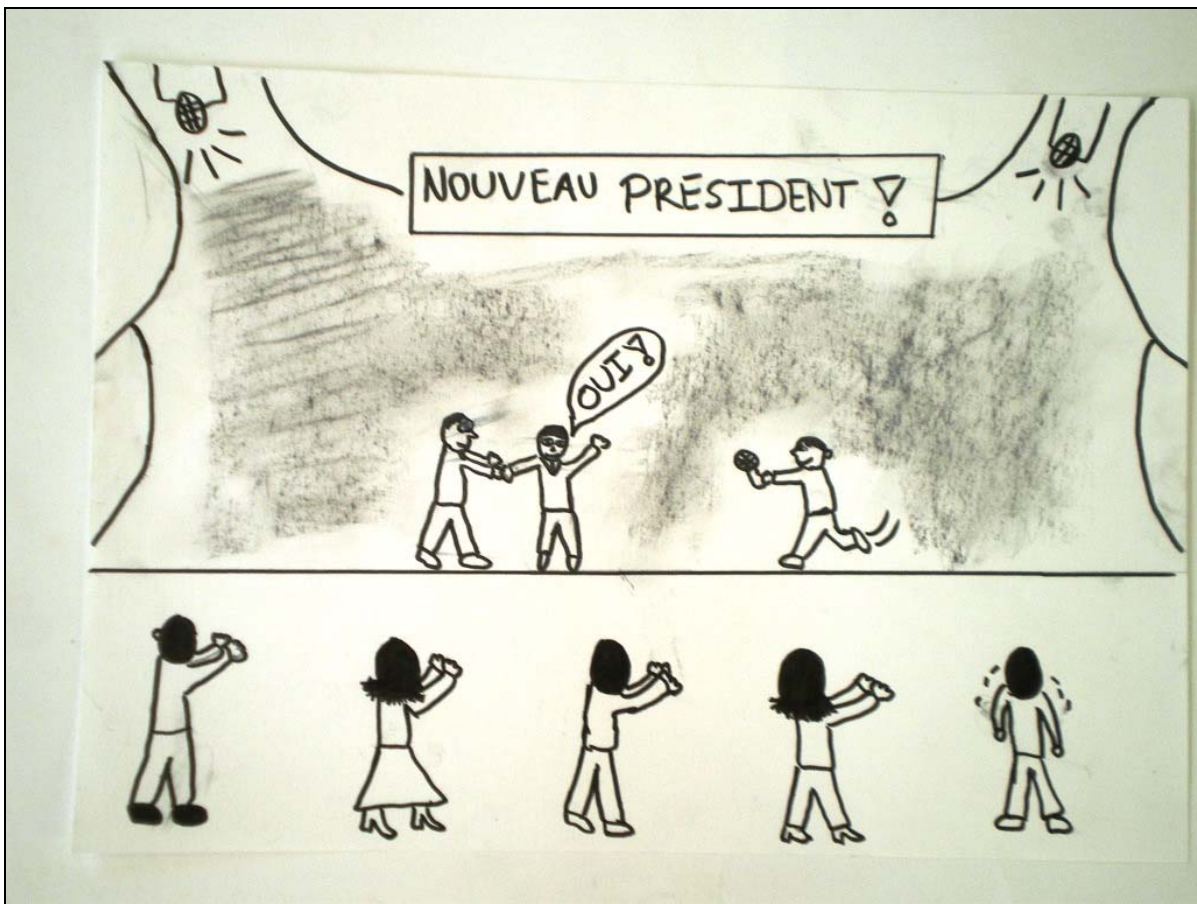 NOUVEAU PRÉSIDENT !
OUI !